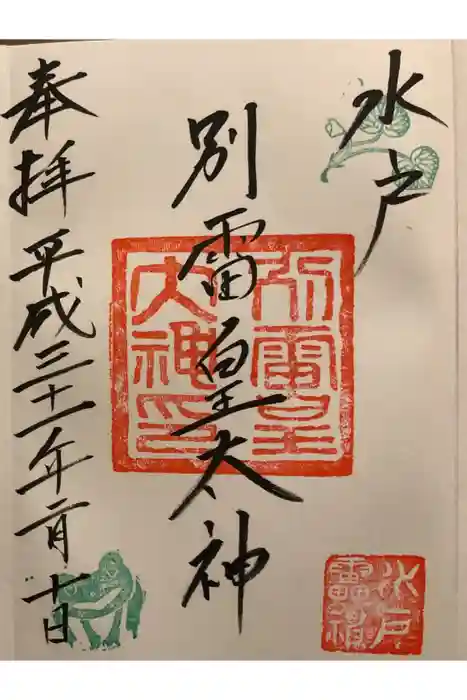 水戸
別雷皇太神
別雷皇
大神印
水戸
雷神
奉拝 平成三十一年二月十日